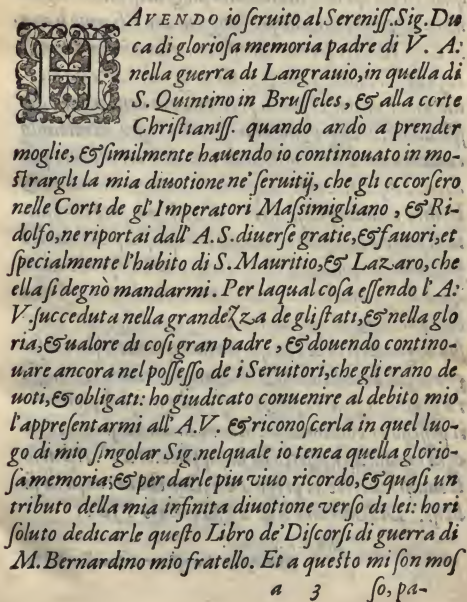 HAVENDO io ſeruito al Sereniſſ. Sig. Du
ca di glorioſa memoria padre di V. A:
nella guerra di Langrauio, in quella di
S. Quintino in Bruſſeles, & alla corte
Chriſtianiſſ. quando andò a prender
moglie, & ſimilmente hauendo io continouato in mo-
ſtrargli la mia diuotione ne' ſeruitij, che gli occorſero
nelle Corti de gl' Imperatori Maſsimigliano, & Ri-
dolfo, ne riportai dall' A.S. diuerſe gratie, & fauori, et
ſpecialmente l'habito di S. Mauritio, & Lazaro, che
ella ſi degnò mandarmi. Per laqual coſa eſſendo l' A:
V. ſucceduta nella grandezza de gli ſtati, & nella glo
ria, & ualore di coſi gran padre, & douendo contino-
uare ancora nel poſſeſſo de i Seruitori, che gli erano de
uoti, & obligati: ho giudicato conuenire al debito mio
l'appreſentarmi all' A.V. & riconoſcerla in quel luo-
go di mio ſingolar Sig. nelquale io tenea quella glorio-
ſa memoria; & per darle piu viuo ricordo, & quaſi un
tributo della mia infinita diuotione verſo di lei: ho ri
ſoluto dedicarle queſto Libro de' Diſcorſi di guerra di
M. Bernardino mio fratello. Et a queſto mi ſon moſ
a 3 ſo, pa-